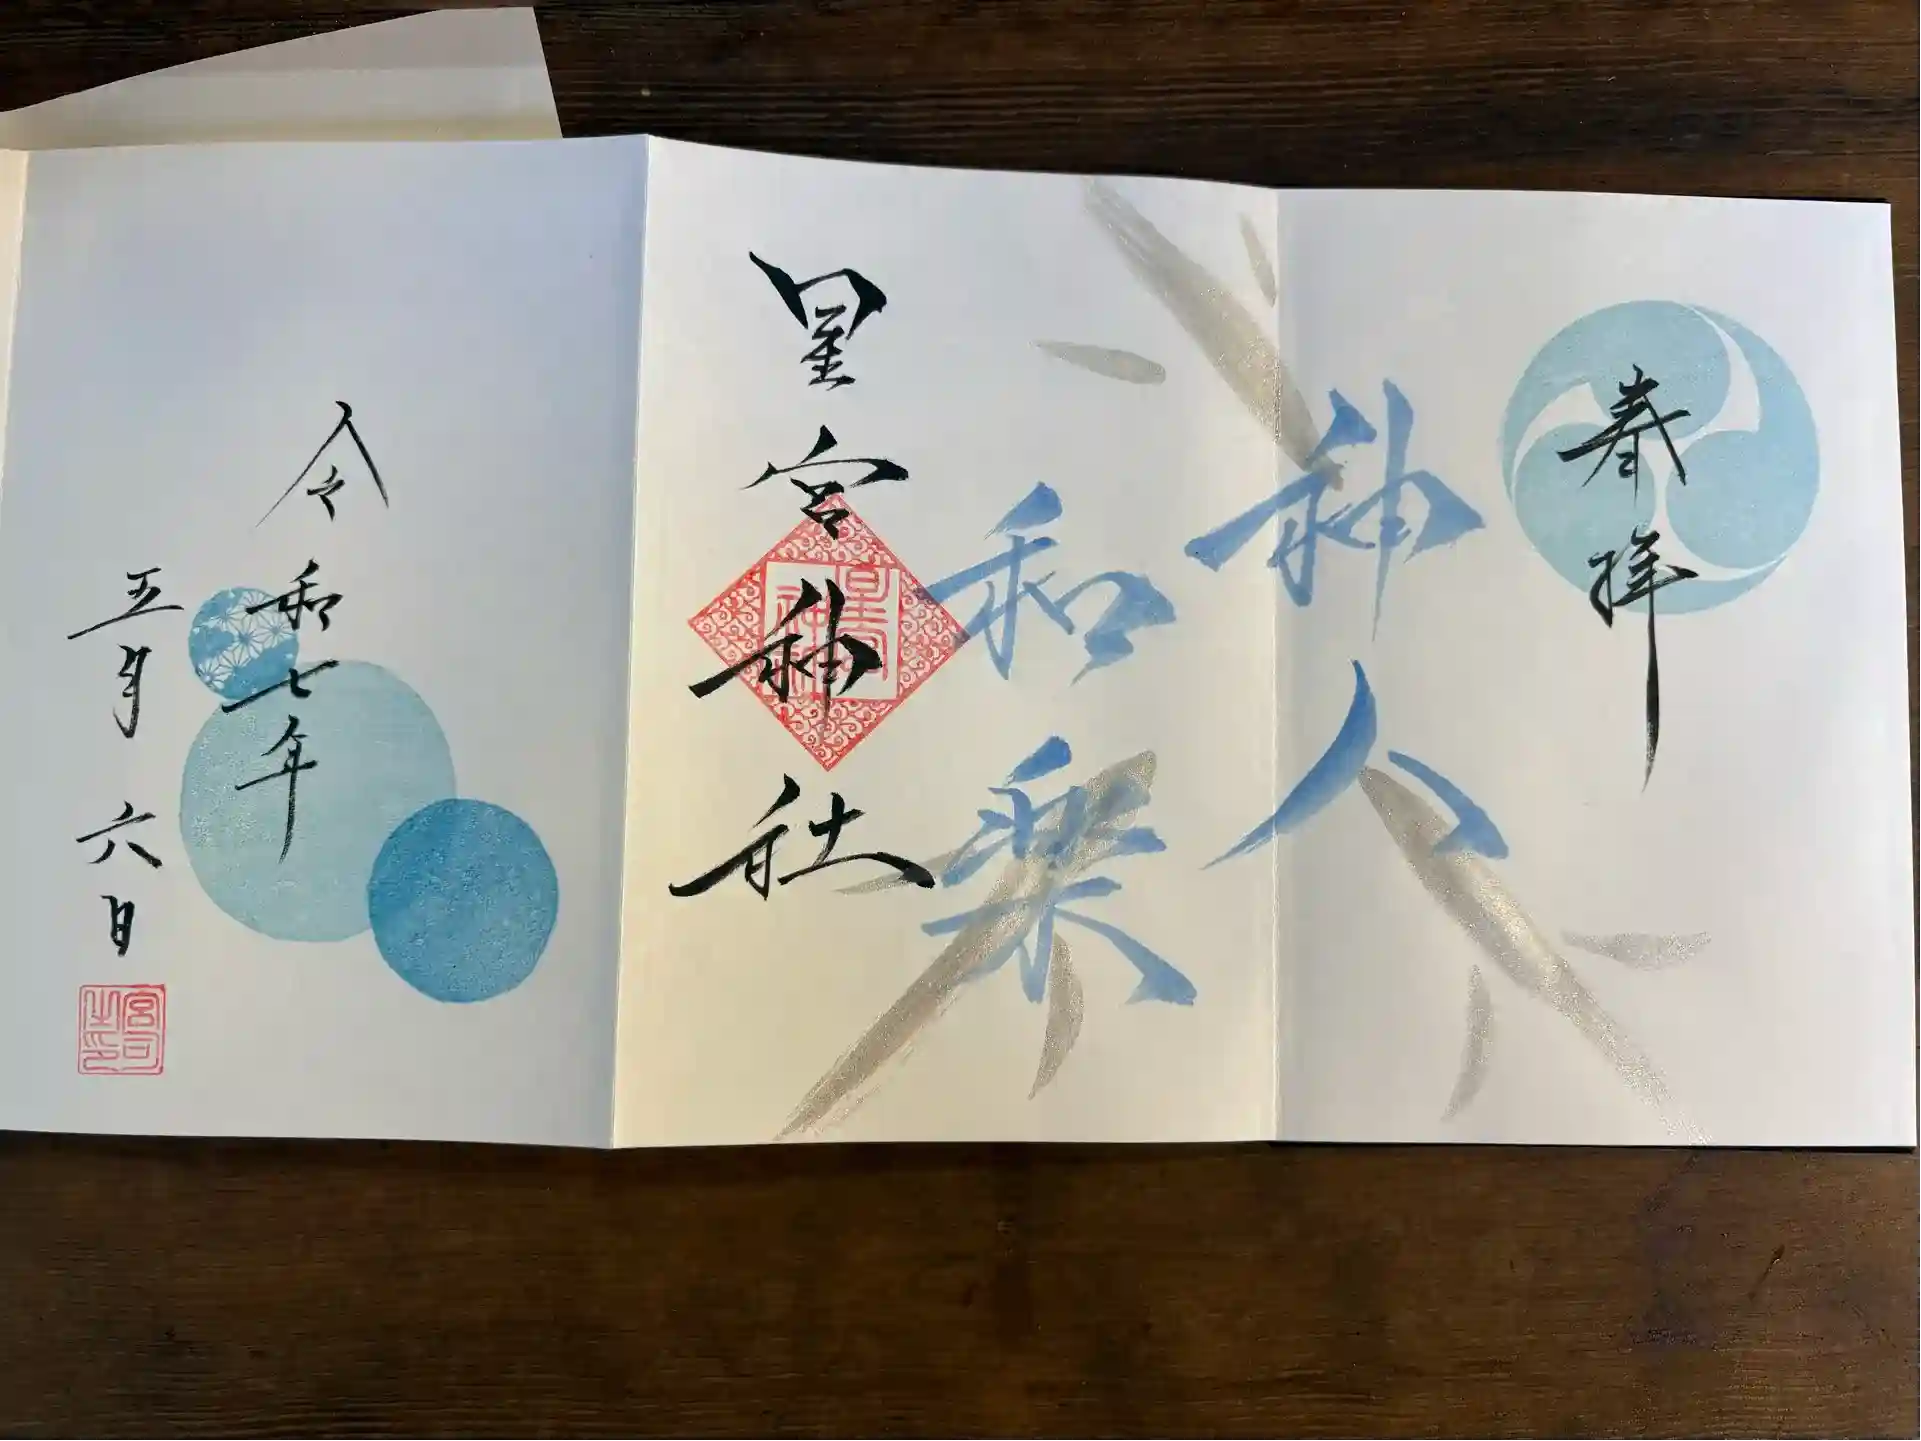 奉拝
神人
和楽
星宮神社
星宮神社
令和七年
五月六日
宮司之印